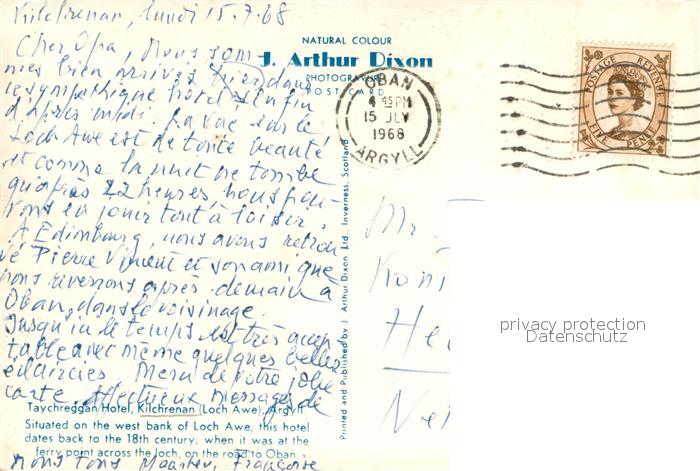 Kilchrenan, lundi 15.7.68
Cher Opa, Nous som-
mes bien arrivés hier dans
ce sympathique hôtel en fin
d'après midi. La vue sur le
Loch Awe est de toute beauté
et comme la nuit ne tombe
qu'après 22 heures, nous pou-
vons en jouir tout à loisir.
A Edimbourg, nous avons retrou-
vé Pierre Vincent et son ami que
nous reverrons après demain à
Oban, dans le voisinage.
Jusqu'ici le temps est très accep-
table avec même quelques belles
éclaircies. Merci de votre jolie
carte. Affectueux messages de
nous tous Françoise
NATURAL COLOUR
J. Arthur Dixon
PHOTOGRAVURE
POST CARD
OBAN
4 45 PM
15 JLY
1968
ARGYLL
POSTAGE REVENUE
FIVE PENCE
Mr.
He
privacy protection
Datenschutz
Printed and Published by J. Arthur Dixon Ltd., Inverness, Scotland
Taychreggan Hotel, Kilchrenan (Loch Awe), Argyll
Situated on the west bank of Loch Awe, this hotel
dates back to the 18th century, when it was at the
ferry point across the loch, on the road to Oban.